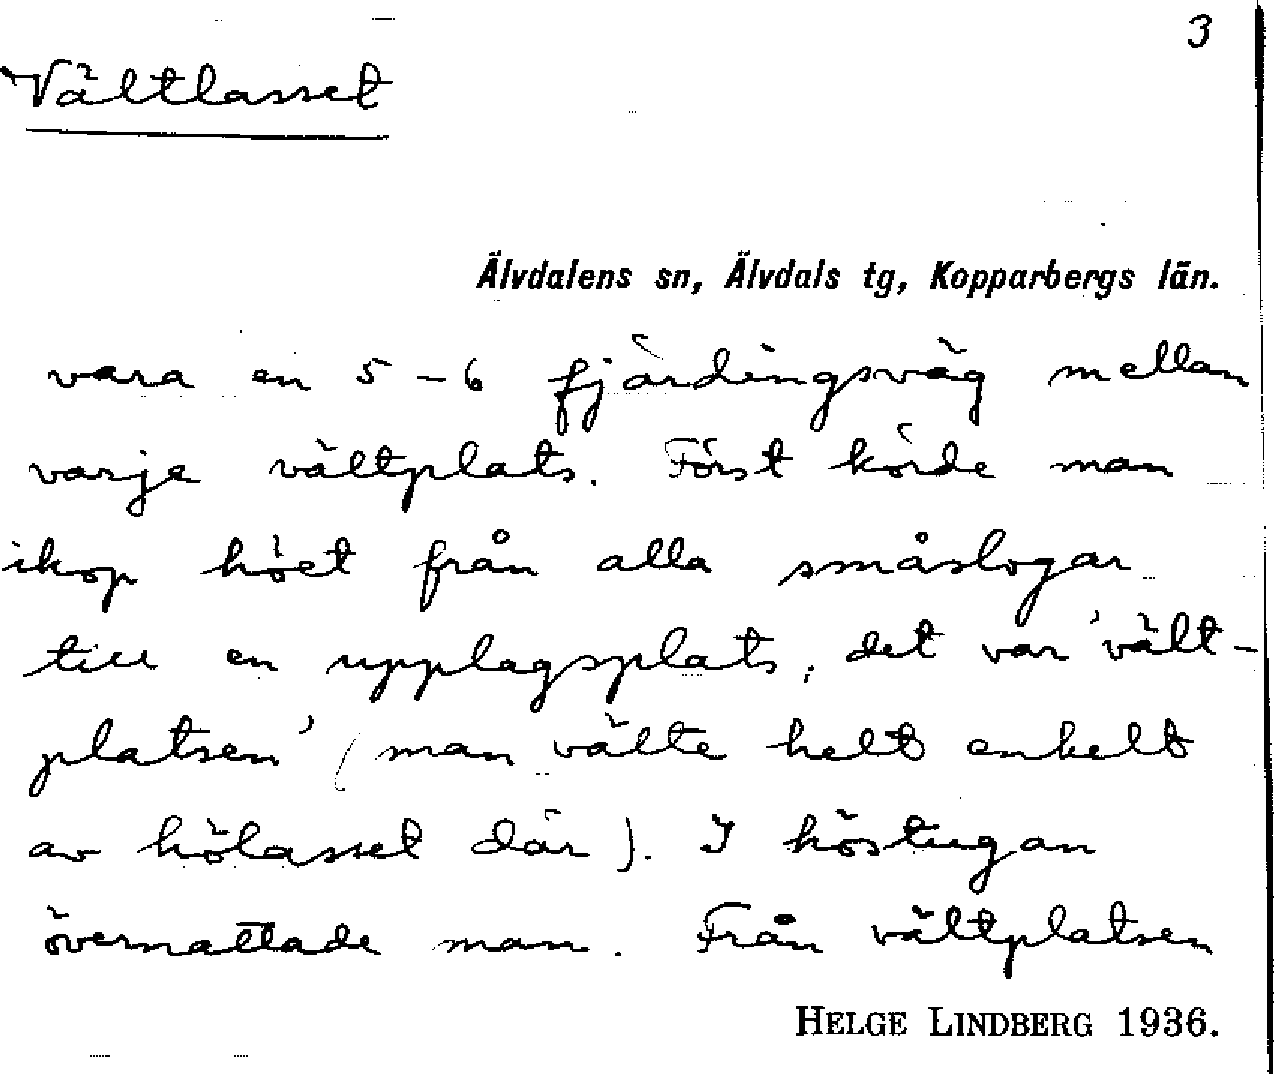 3
Vältlasset
Älvdalens sn, Älvdals tg, Kopparbergs län.
vara en 5-6 fjärdingsväg mellan
varje vältplats. Först körde man
ihop höet från alla småslogar
till en upplagsplats, det var 'vält-
platsen' (man välte helt enkelt
av hölasset där). I höstugan
övernattade man. Från vältplatsen
HELGE LINDBERG 1936.